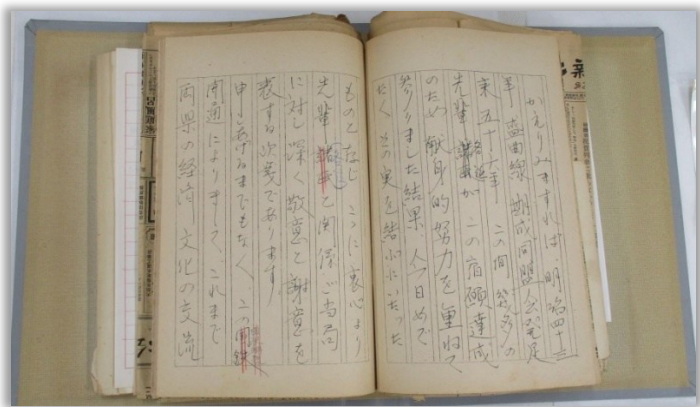 かえりみますれば、明治四十三
年 盛曲線 期成同盟会が発足
来 五十一年 この間 幾多の
先輩 が この宿願達成
のため 献身的努力を重ねて
参りました結果、今日めで
たく その実を結ぶにいたった
ものと存じ ここに衷心より
先輩 と関係ご当局
に対し 深く敬意と謝意を
表する次第であります
申しあげるまでもなく、この
開通によりまして、これまで
両県の経済、文化の交流